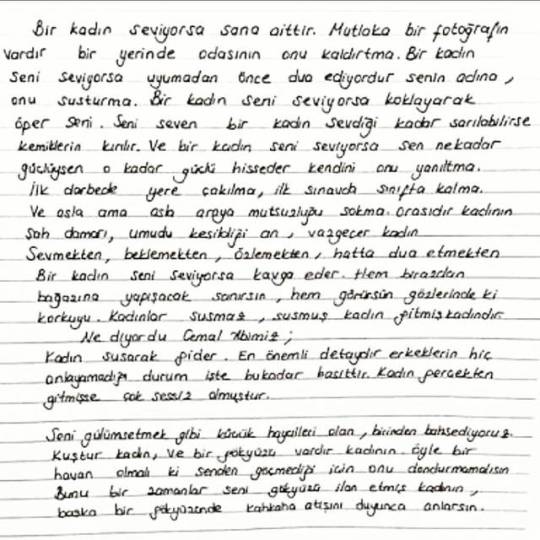 Bir kadın seviyorsa sana aittir. Mutlaka bir fotoğrafın
vardır bir yerinde odasının onu kaldırtma. Bir kadın
seni seviyorsa uyumadan önce dua ediyordur senin adına,
onu susturma. Bir kadın seni seviyorsa koklayarak
öper seni. Seni seven bir kadın sevdiği kadar sarılabilirse
kemiklerin kırılır. Ve bir kadın seni seviyorsa sen nekadar
güçlüysen o kadar güçlü hisseder kendini onu yanıltma.
İlk darbede yere çakılma, ilk sınavda sınıfta kalma.
Ve asla ama asla araya mutsuzluğu sokma. orasıdır kadının
şah damarı, umudu kesildiği an, vazgeçer kadın
Sevmekten, beklemekten, özlemekten, hatta dua etmekten
Bir kadın seni seviyorsa kavga eder. Hem birazdan
boğazına yapışacak sanırsın, hem görürsün gözlerinde ki
korkuyu. Kadınlar susmaz, susmuş kadın gitmiş kadındır
Ne diyordu Cemal Abimiz;
Kadın susarak gider. En önemli detaydır erkeklerin hiç
anlayamadığı durum işte bukadar basittir. Kadın gerçekten
gitmişse çok sessiz olmuştur.
Seni gülümsetmek gibi küçük hayalleri olan, birinden bahsediyoruz.
Kuştur kadın, ve bir gökyüzü vardır kadının. öyle bir
havan olmalı ki senden göçmediği için onu dondurmamalısın
Bunu bir zamanlar seni gökyüzü ilan etmiş kadının,
başka bir gökyüzünde kahkaha atışını duyunca anlarsın.